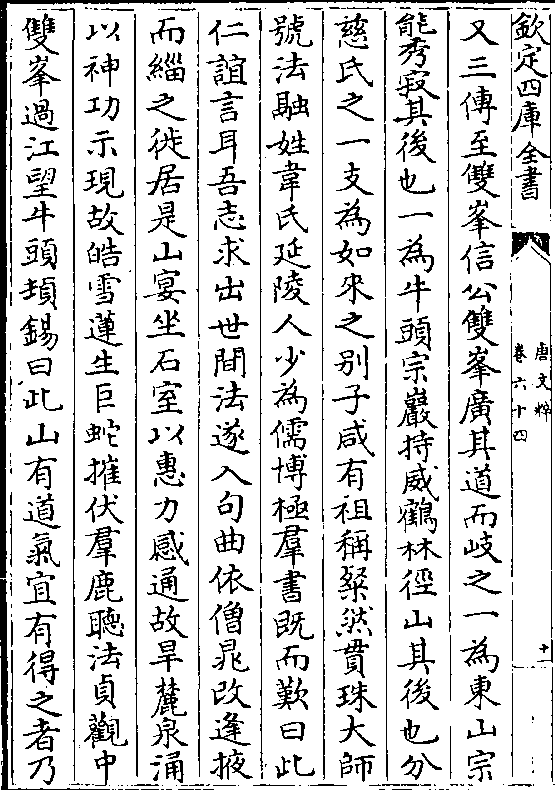 欽定四庫全書
唐文粹
卷六十四
十一
又三傳至雙峯信公雙峯廣其道而岐之一為東山宗
能秀寂其後也一為牛頭宗巖持威鶴林徑山其後也分
慈氏之一支為如來之别子咸有祖稱粲然貫珠大師
號法融姓韋氏延陵人少為儒博極羣書既而歎曰此
仁誼言耳吾志求出世間法遂入句曲依僧炅改逢掖
而緇之徙居是山宴坐石室以惠力感通故旱麓泉涌
以神功示現故皓雪蓮生巨蛇摧伏羣鹿聽法貞觀中
雙峯過江望牛頭頓錫曰此山有道氣宜有得之者乃